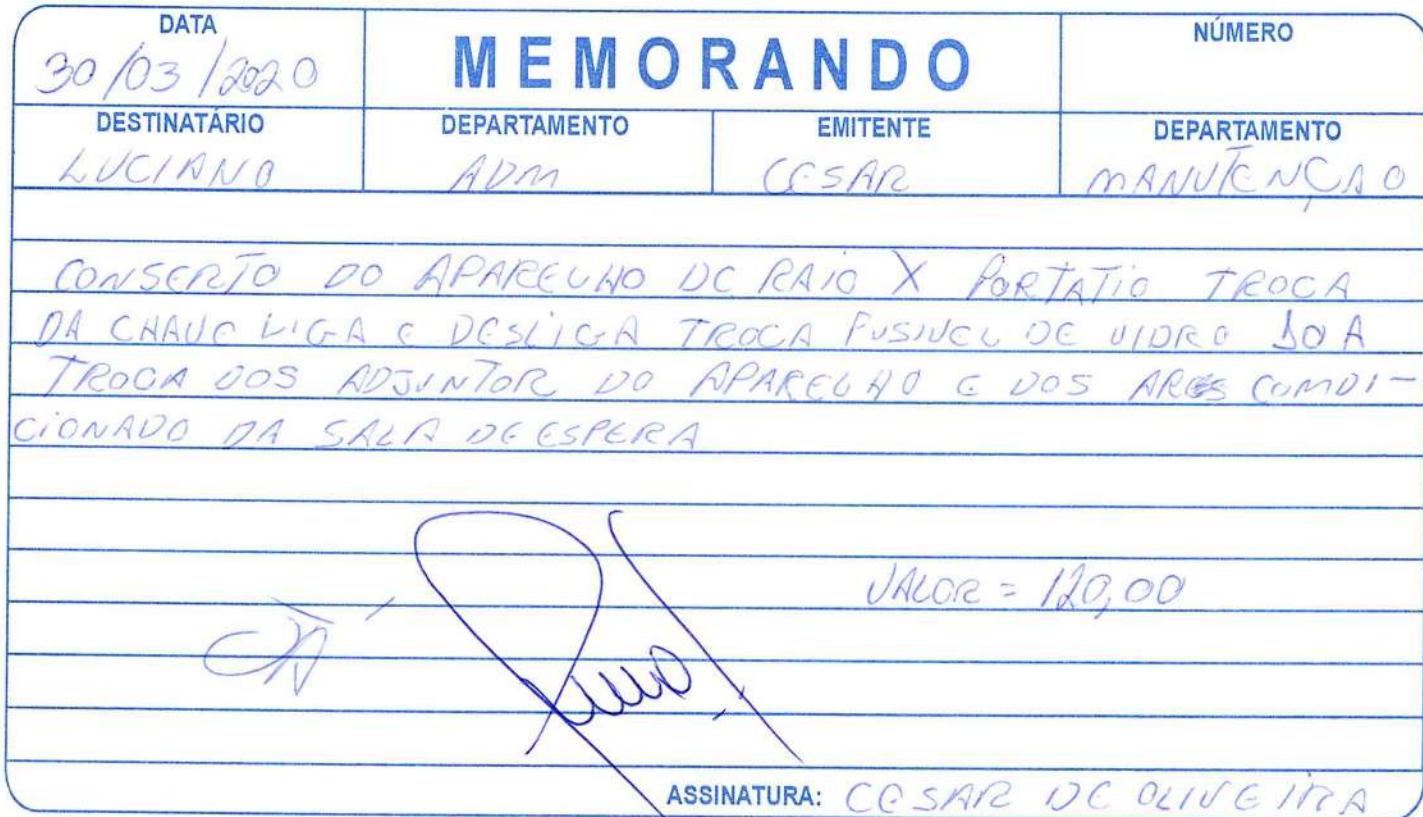 DATA
30/03/2020
MEMORANDO
NÚMERO
DESTINATÁRIO
LUCIANO
DEPARTAMENTO
ADM
EMITENTE
CESAR
DEPARTAMENTO
MANUTENÇAO
CONSERTO DO APARELHO DE RAIO X PORTATIO TROCA
DA CHAVE LIGA E DESLIGA TROCA FUSIVEL DE VIDRO 10 A
TROCA DOS ADJUNTOR DO APARELHO E DOS ARES COMDI-
CIONADO DA SALA DE ESPERA
VALOR = 120,00
ASSINATURA: CESAR DE OLIVEIRA